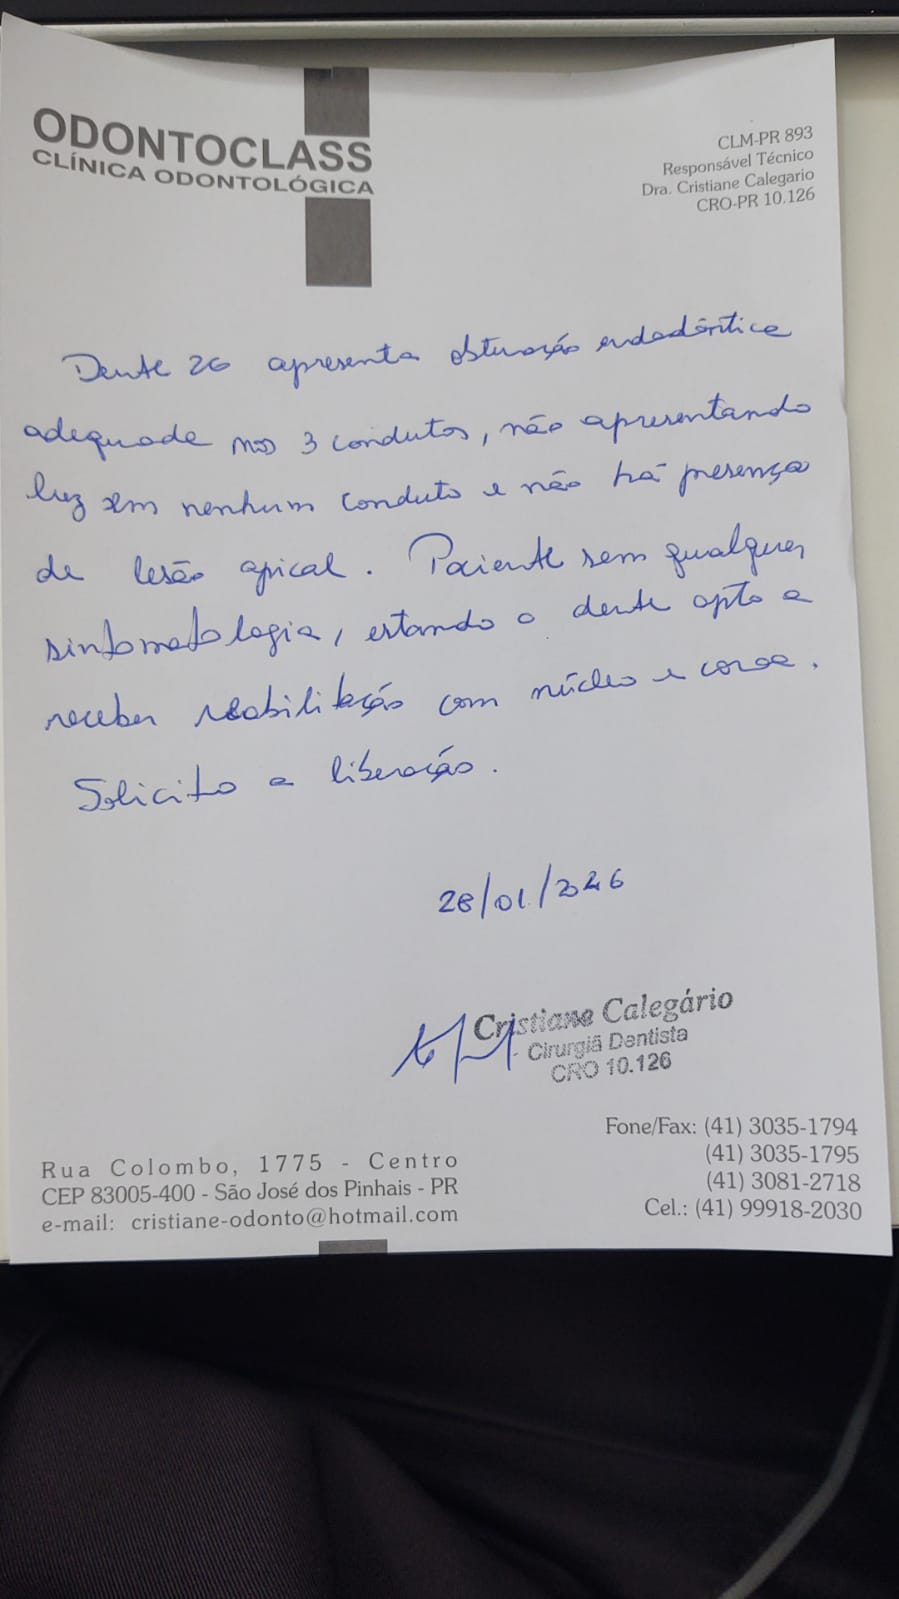 ODONTOCLASS
CLÍNICA ODONTOLÓGICA
CLM-PR 893
Responsável Técnico
Dra. Cristiane Calegario
CRO-PR 10.126
Dente 26 apresenta obturação endodôntica
adequada nos 3 condutos, não apresentando
luz em nenhum conduto e não há presença
de lesão apical. Paciente sem qualquer
sintomatologia, estando o dente apto a
receber reabilitação com núcleo e coroa.
Solicito a liberação.
28/01/2026
Cristiane Calegário
Cirurgiã Dentista
CRO 10.126
Rua Colombo, 1775 - Centro
CEP 83005-400 - São José dos Pinhais - PR
e-mail: cristiane-odonto@hotmail.com
Fone/Fax: (41) 3035-1794
(41) 3035-1795
(41) 3081-2718
Cel.: (41) 99918-2030